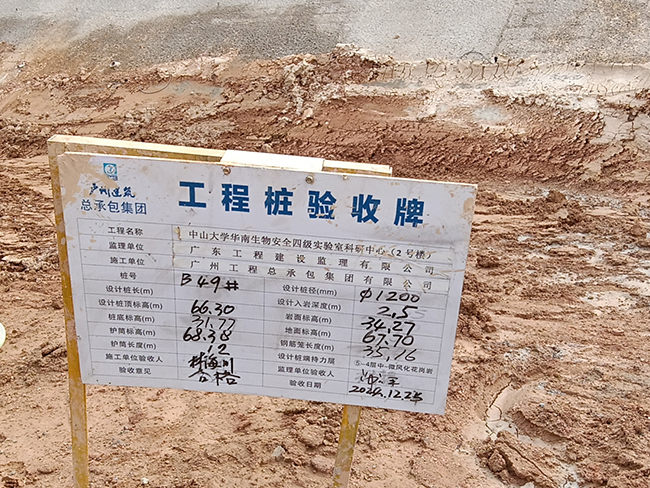 广州建筑
总承包集团
工程桩验收牌
工程名称 中山大学华南生物安全四级实验室科研中心（2号楼）
监理单位 广东工程建设监理有限公司
施工单位 广州工程总承包集团有限公司
桩号 B49# 设计桩径(mm) Φ1200
设计桩长(m) 设计入岩深度(m) 2.5
设计桩顶标高(m) 66.30 岩面标高(m) 34.27
桩底标高(m) 31.77 地面标高(m) 67.70
护筒标高(m) 68.38 钢筋笼长度(m) 35.76
护筒长度(m) 12 设计桩端持力层 5-4层中-微风化花岗岩
施工单位验收人 监理单位验收人
验收意见 合格 验收日期 2024.12.25